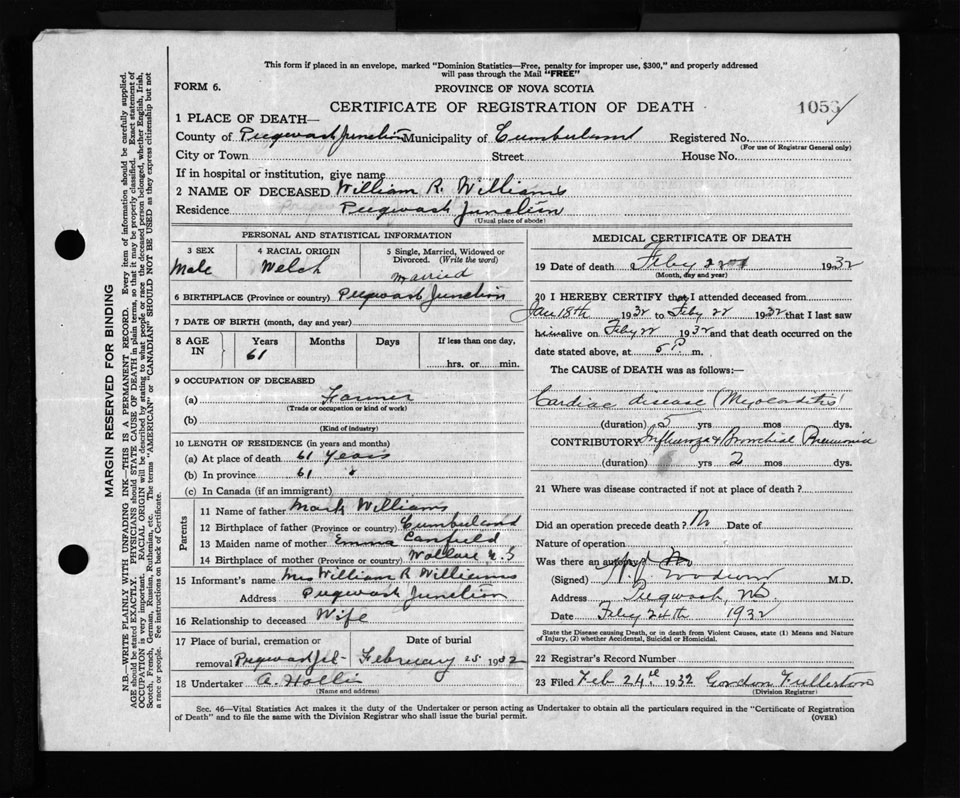 This form if placed in an envelope, marked "Dominion Statistics—Free, penalty for improper use, $300," and properly addressed
will pass through the Mail "FREE"
FORM 6.
PROVINCE OF NOVA SCOTIA
CERTIFICATE OF REGISTRATION OF DEATH
1 PLACE OF DEATH—
County of Pugwash Junction Municipality of Cumberland Registered No.
(For use of Registrar General only)
City or Town Street House No.
If in hospital or institution, give name
2 NAME OF DECEASED William R. Williams
Residence Pugwash Junction
(Usual place of abode)
PERSONAL AND STATISTICAL INFORMATION
3 SEX 4 RACIAL ORIGIN 5 Single, Married, Widowed or
Divorced. (Write the word)
Male Welch Married
6 BIRTHPLACE (Province or country) Pugwash Junction
7 DATE OF BIRTH (month, day and year)
8 AGE IN Years Months Days If less than one day,
61 hrs. or min.
9 OCCUPATION OF DECEASED
(a) Farmer
(Trade or occupation or kind of work)
(b)
(Kind of industry)
10 LENGTH OF RESIDENCE (in years and months)
(a) At place of death 61 Years
(b) In province 61 "
(c) In Canada (if an immigrant)
Parents
11 Name of father Mark Williams
12 Birthplace of father (Province or country) Cumberland
13 Maiden name of mother Emma Canfield
14 Birthplace of mother (Province or country) Wallace N.S
15 Informant's name Mrs William R Williams
Address Pugwash Junction
16 Relationship to deceased Wife
17 Place of burial, cremation or Date of burial
removal Pugwash Jct- February 25 1932
18 Undertaker A. Hollis
(Name and address)
MEDICAL CERTIFICATE OF DEATH
19 Date of death Feby 22nd 1932
(Month, day and year)
20 I HEREBY CERTIFY that I attended deceased from
Jan 18th 1932 to Feby 22 1932 that I last saw
him alive on Feby 22 1932 and that death occurred on the
date stated above, at 5 P. m.
The CAUSE of DEATH was as follows:—
Cardiac disease (Myocarditis)
(duration) 5 yrs mos dys.
CONTRIBUTORY Influenza & Bronchial Pneumonia
(duration) yrs 2 mos dys.
21 Where was disease contracted if not at place of death?
Did an operation precede death? No Date of
Nature of operation
Was there an autopsy? No
(Signed) M.D.
Address Pugwash, NS
Date Feby 24th 1932
State the Disease causing Death, or in death from Violent Causes, state (1) Means and Nature
of Injury, (2) whether Accidental, Suicidal or Homicidal.
22 Registrar's Record Number
23 Filed Feb 24th 1932 Gordon Fullerton
(Division Registrar)
Sec. 46—Vital Statistics Act makes it the duty of the Undertaker or person acting as Undertaker to obtain all the particulars required in the "Certificate of Registration
of Death" and to file the same with the Division Registrar who shall issue the burial permit.
(OVER)
MARGIN RESERVED FOR BINDING
N.B.—WRITE PLAINLY WITH UNFADING INK—THIS IS A PERMANENT RECORD. Every item of information should be carefully supplied.
AGE should be stated EXACTLY. PHYSICIANS should STATE CAUSE OF DEATH in plain terms, so that it may be properly classified. Exact statement of
OCCUPATION is very important. RACIAL ORIGIN will be described by stating to what people or race the deceased person belonged, whether English, Irish,
Scotch, French, German, Russian, Ruthenian, etc. The terms "AMERICAN" or "CANADIAN" SHOULD NOT BE USED as they express citizenship but not
a race or people. See instructions on back of Certificate.